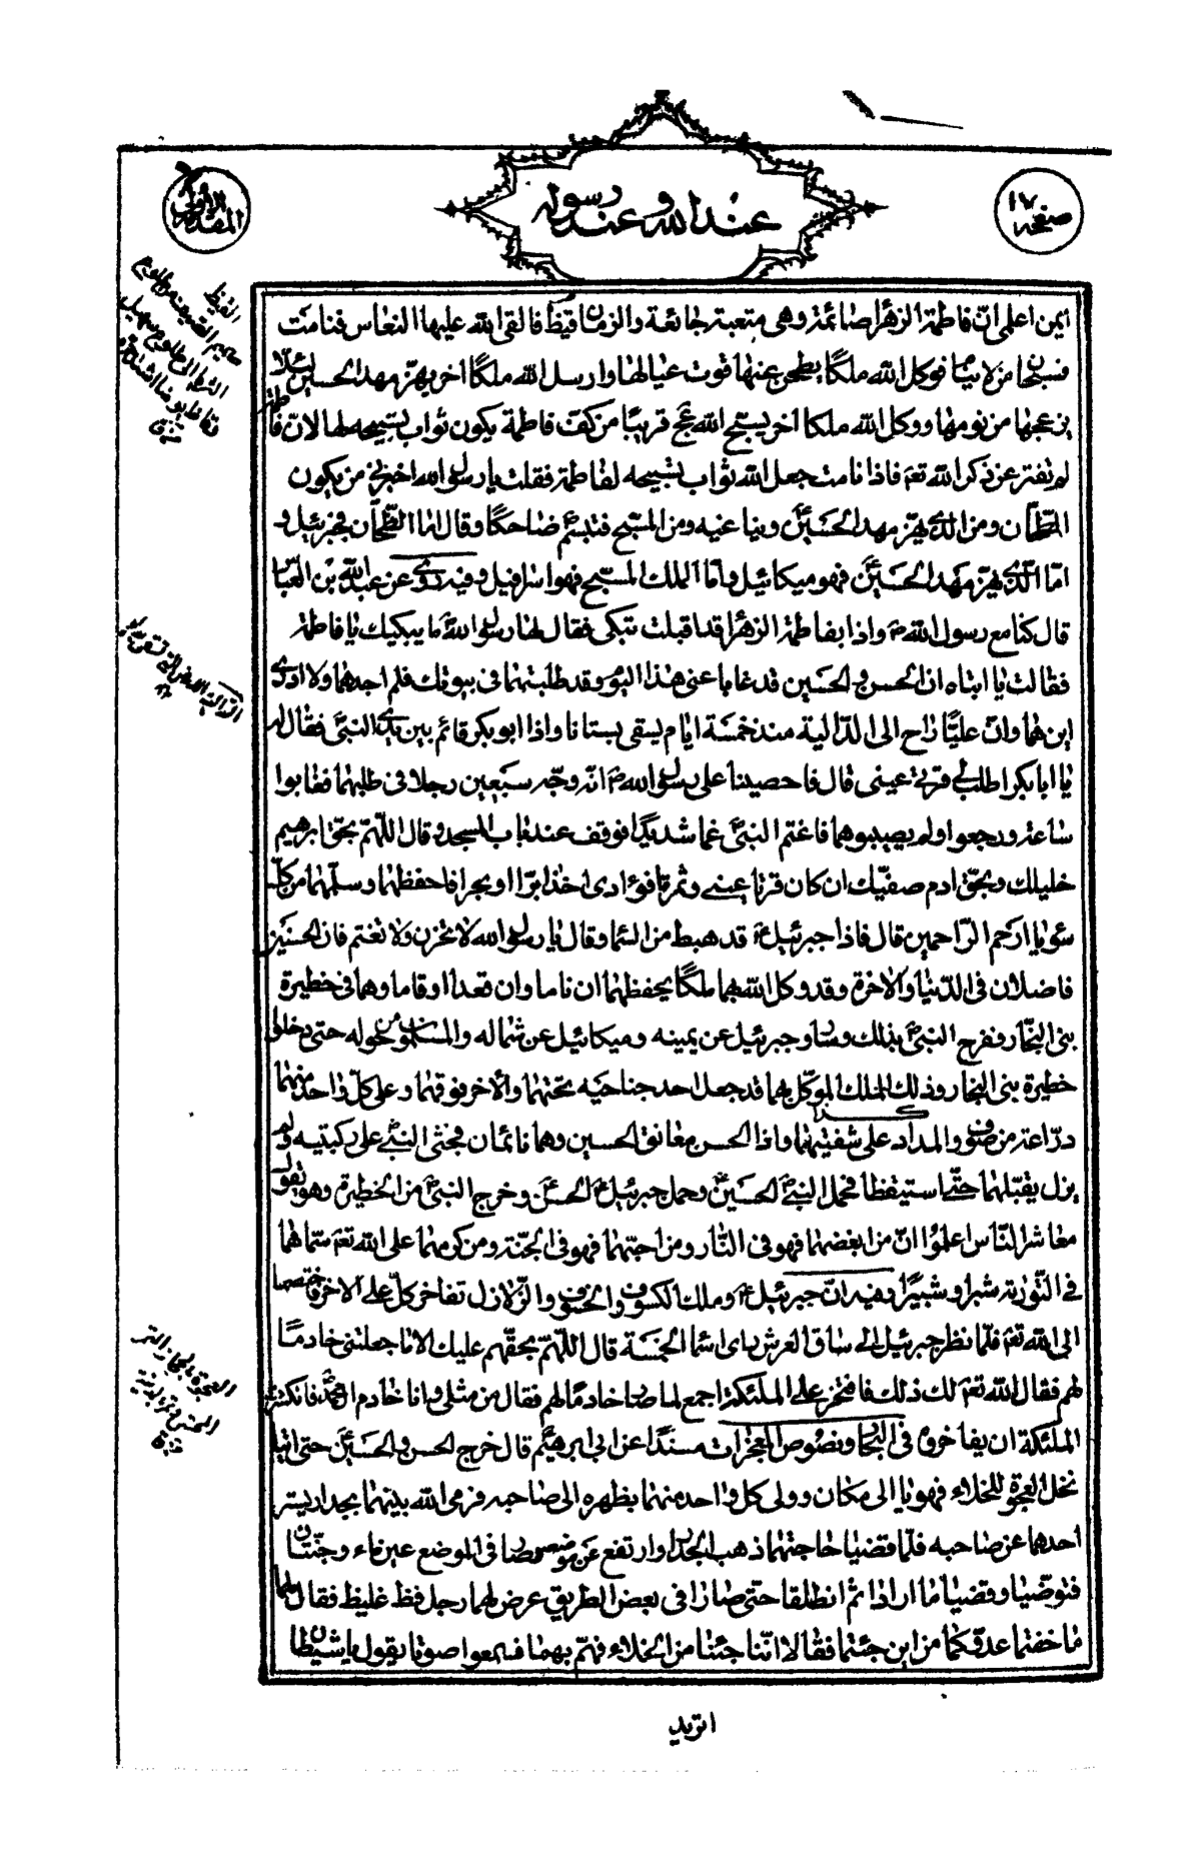 صفحه ١٧
عند الله وعند رسوله
المقدمة الأولى
ايمن اعلمى ان فاطمة الزهرا صائمة وهى متعبة جائعة والزمان قيظ فالقى الله عليها النعاس فنامت
فسبحان من لا ينام فوكل الله ملكًا يطحن عنها قوت عيالها وارسل الله ملكًا اخر يهز مهد الحسين لئلا
يزعجها من نومها ووكل الله ملكا اخر يسبح الله عج قريبًا من كف فاطمة يكون ثواب تسبيحه لها لان فاطمة
لم تفتر عن ذكر الله تعم فاذا نامت جعل الله ثواب تسبيحه لفاطمة فقلت يا رسول الله اخبرنى من يكون
الطحان ومن الذى يهز مهد الحسين ويناغيه ومن المسبح فتبسم ضاحكًا وقال اما الطحان فجبرئيل و
اما الذى يهز مهد الحسين فهو ميكائيل واما الملك المسبح فهو اسرافيل وفيه روى عن عبد الله بن العباس
قال كنا مع رسول الله ص واذا بفاطمة الزهرا قد اقبلت تبكى فقال لها رسول الله ما يبكيك يا فاطمة
فقالت يا ابتاه ان الحسن والحسين قد غابا عنى هذا اليوم وقد طلبتهما فى بيوتك فلم اجدهما ولا ادرى
اين هما وان عليًا راح الى الدالية منذ خمسة ايام يسقى بستانا واذا ابو بكر قائم بين يدى النبى فقال له
يا ابا بكر اطلب لى قرتى عينى قال فاحصينا على رسول الله ص انه وجه سبعين رجلا فى طلبهما فغابوا
ساعة ورجعوا ولم يصيبوهما فاغتم النبى غما شديدًا فوقف عند باب المسجد وقال اللهم بحق ابرهيم
خليلك وبحق ادم صفيك ان كان قرتا عينى وثمرتا فؤادى اخذا برًا او بحرا فاحفظهما وسلمهما من كل
سوء يا ارحم الراحمين قال فاذا جبرئيل قد هبط من السماء وقال يا رسول الله لا تحزن ولا تغتم فان الحسنين
فاضلان فى الدنيا والاخرة وقد وكل الله بهما ملكًا يحفظهما ان ناما وان قعدا او قاما وهما فى حظيرة
بنى النجار ففرح النبى بذلك وسار وجبرئيل عن يمينه وميكائيل عن شماله والمسلمون من حوله حتى دخلوا
حظيرة بنى النجار وذلك الملك الموكل بهما قد جعل احد جناحيه تحتهما والاخر فوقهما وعلى كل واحد منهما
دراعة من صوف والمداد على شفتيهما واذا الحسن معانق الحسين وهما نائمان فجثى النبى على ركبتيه ولم
يزل يقبلهما حتى استيقظا فحمل النبى الحسين وحمل جبرئيل الحسن وخرج النبى من الحظيرة وهو يقول
معاشر الناس اعلموا ان من ابغضهما فهو فى النار ومن احبهما فهو فى الجنة ومن كرمهما على الله تعم سماهما
فى التورية شبرا وشبيرًا وفيه ان جبرئيل وملك الكسوف والخسوف والزلازل تفاخر كل على الاخر فاختصما
الى الله تعم فلما نظر جبرئيل الى ساق العرش راى اسماء الخمسة قال اللهم بحقهم عليك الا ما جعلتنى خادمًا
لهم فقال الله تعم لك ذلك فافتخر على الملئكة اجمع لما صار خادمًا لهم فقال من مثلى وانا خادم ال محمد فانكسرت
الملئكة ان يفاخروه فى البحار ونصوص المعجزات مسندًا عن ابى ابرهيم قال خرج الحسن والحسين حتى اتيا
نخل العجوة للخلاء فهويا الى مكان وولى كل واحد منهما بظهره الى صاحبه فرمى الله بينهما بجدار يستر
احدهما عن صاحبه فلما قضيا حاجتهما ذهب الجدار وارتفع عن موضعه وصار فى الموضع عين ماء وجنتان
فتوضيا وقضيا ما ارادا ثم انطلقا حتى صارا فى بعض الطريق عرض لهما رجل فظ غليظ فقال لهما
ما خفتما عدوكما من اين جئتما فقالا اننا جئنا من الخلاء فهم بهما فسمعوا صوتا يقول يا شيطان
اتريد
القيظ
صميم الصيف من طلوع
الثريا الى طلوع سهيل